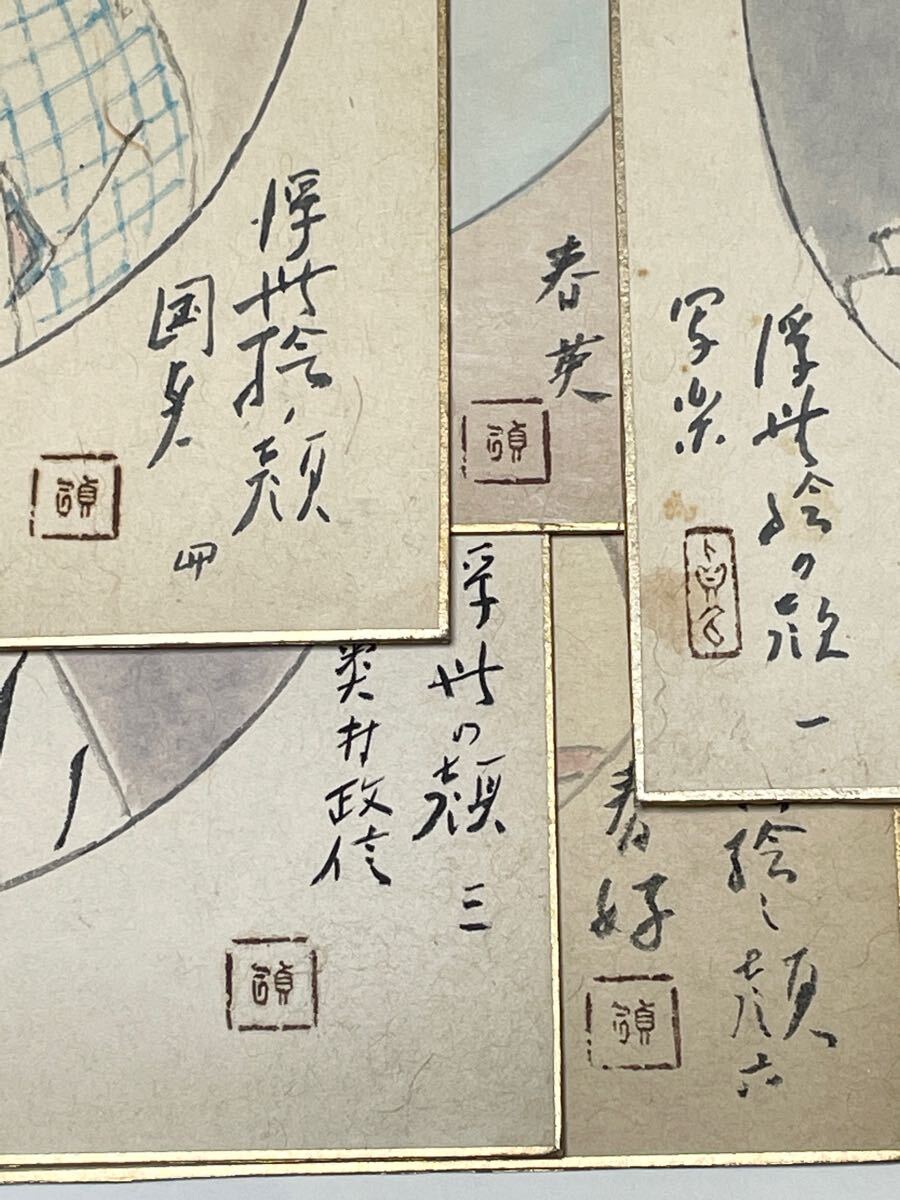 浮世絵の顔 一
写楽
春英
浮世絵ノ顔 四
国貞
浮世の顔 三
奥村政信
絵之顔 六
春好